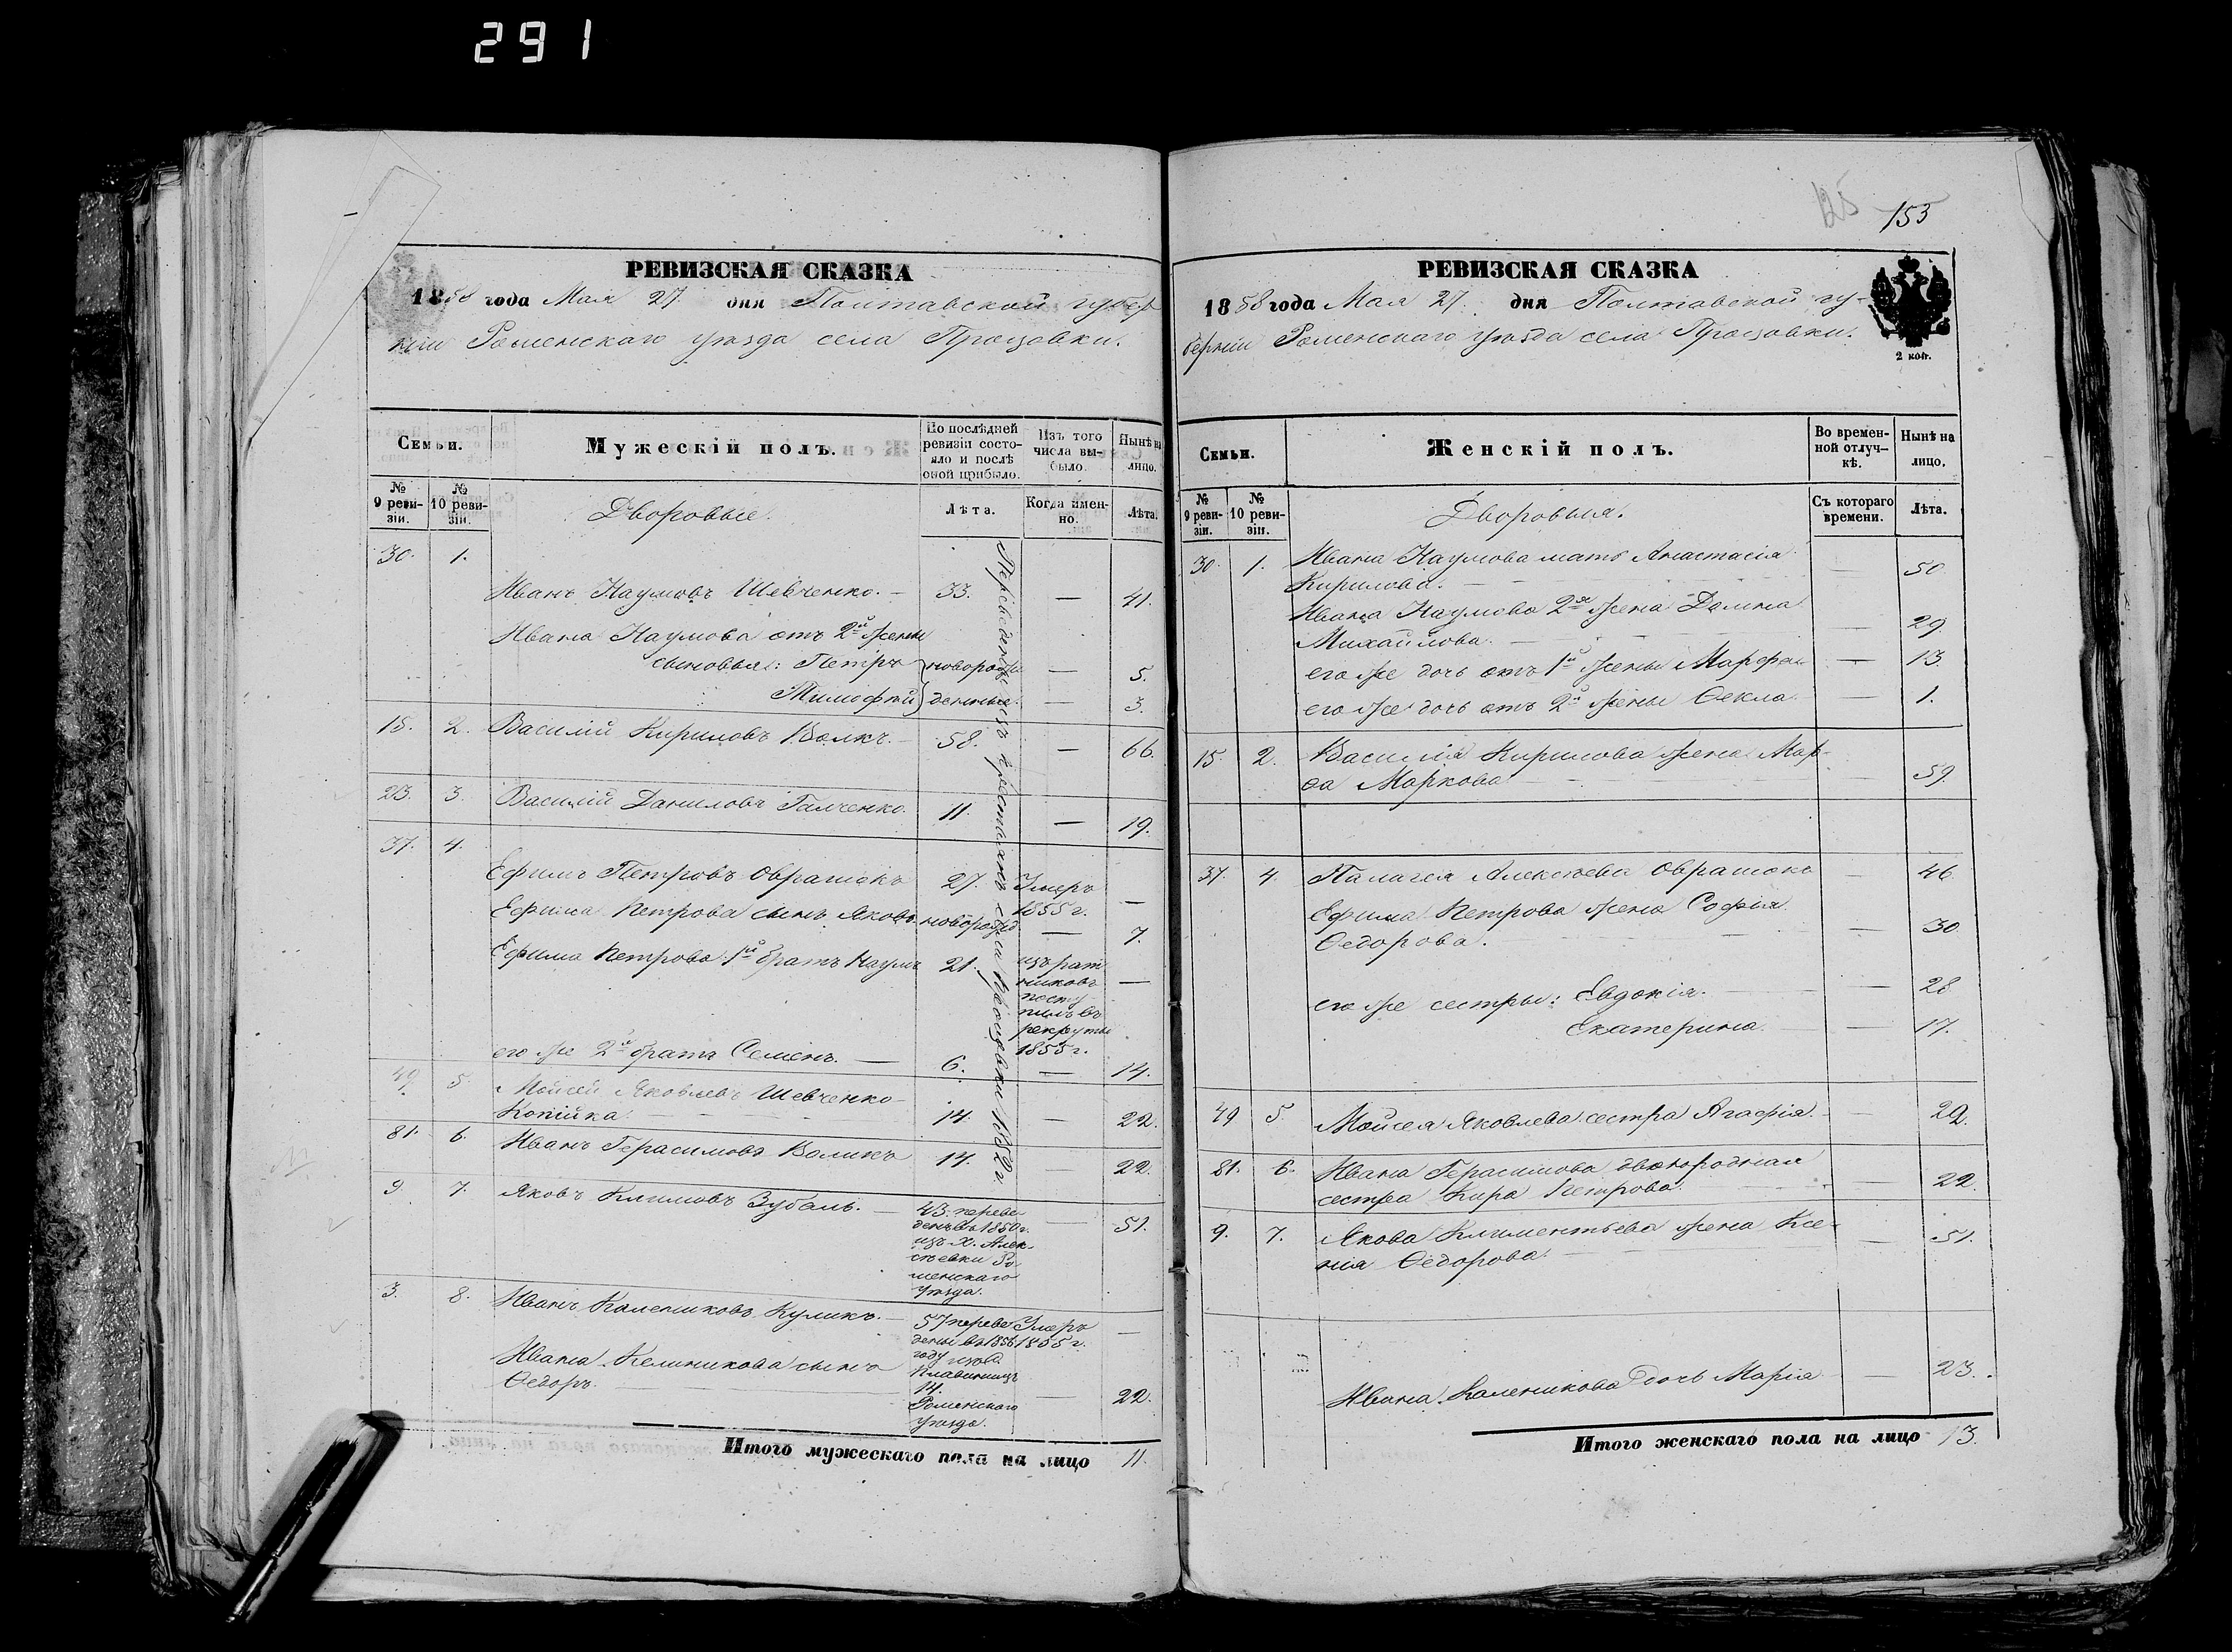 291
125 153
РЕВИЗСКАЯ СКАЗКА
1858 года Мая 27 дня Полтавской губер
ніи Роменскаго уѣзда села Процовки.
Семьи.
Мужескій полъ.
По послѣдней ревизіи состояло и послѣ оной прибыло.
Изъ того числа выбыло.
Нынѣ на лицо.
№ 9 ревизіи.
№ 10 ревизіи.
Дворовые.
Лѣта.
Когда именно.
Лѣта.
30. 1.
Иванъ Наумовъ Шевченко. — 33. — 41.
Ивана Наумова отъ 2й жены
сыновья: Петръ новорож — 5.
Тимофей денные. — 3.
Переведены изъ крестьянъ села Процовки 1852 г.
15. 2. Василій Кириловъ Волкъ. — 58. — 66.
23. 3. Василій Даниловъ Галченко. 11. — 19.
37. 4.
Ефимъ Петровъ Оврашокъ 27. Умеръ —
1855 г.
Ефима Петрова сынъ Яковъ новорожд — 7.
Ефима Петрова 1й братъ Наумъ 21. изъ рат —
никовъ
посту
пилъ въ
рекруты
1855 г.
его же 2й братъ Семенъ. — 6. — 14.
49. 5. Мойсей Яковлевъ Шевченко
Копійка. — 14. — 22.
81. 6. Иванъ Герасимовъ Воликъ 14. — 22.
9 7. Яковъ Климовъ Зубаль. — 43. переве — 51.
денъ въ 1850 г.
изъ х. Алек-
сѣевки Ро-
менскаго
уѣзда.
3. 8. Иванъ Калениковъ Куликъ. — 57 переве Умеръ —
дены въ 1856 1855 г.
году изъ д.
Плавинищъ
Ивана Каленикова сынъ
Ѳедоръ. — 14. — 22.
Роменскаго
уѣзда.
Итого мужескаго пола на лицо 11.
РЕВИЗСКАЯ СКАЗКА
1858 года Мая 27. дня Полтавской гу-
берніи Роменскаго уѣзда села Процовки.
2 коп.
Семьи.
Женскій полъ.
Во временной отлучкѣ.
Нынѣ на лицо.
№ 9 ревизіи.
№ 10 ревизіи.
Дворовыя.
Съ котораго времени.
Лѣта.
30. 1. Ивана Наумова мать Анастасія
Кирилова. — 50.
Ивана Наумова 2я жена Домна
Михайлова. — 29.
его же дочь отъ 1й жены Марфа — 13.
его же дочь отъ 2й жены Ѳекла. — 1.
15. 2. Василія Кирилова жена Мар-
ѳа Маркова — 59.
37. 4. Палагея Алексѣева Оврашокъ — 46.
Ефима Петрова жена Софія
Ѳедорова. — 30.
его же сестры: Евдокія. — 28
Екатерина. — 17.
49 5. Мойсея Яковлева сестра Агафія. — 29.
81. 6. Ивана Герасимова двоюродная
сестра Кира Петрова. — 22
9. 7. Якова Климентьева жена Ксе-
нія Ѳедорова. — 51.
Ивана Каленикова дочь Марія — 23.
Итого женскаго пола на лицо 13.